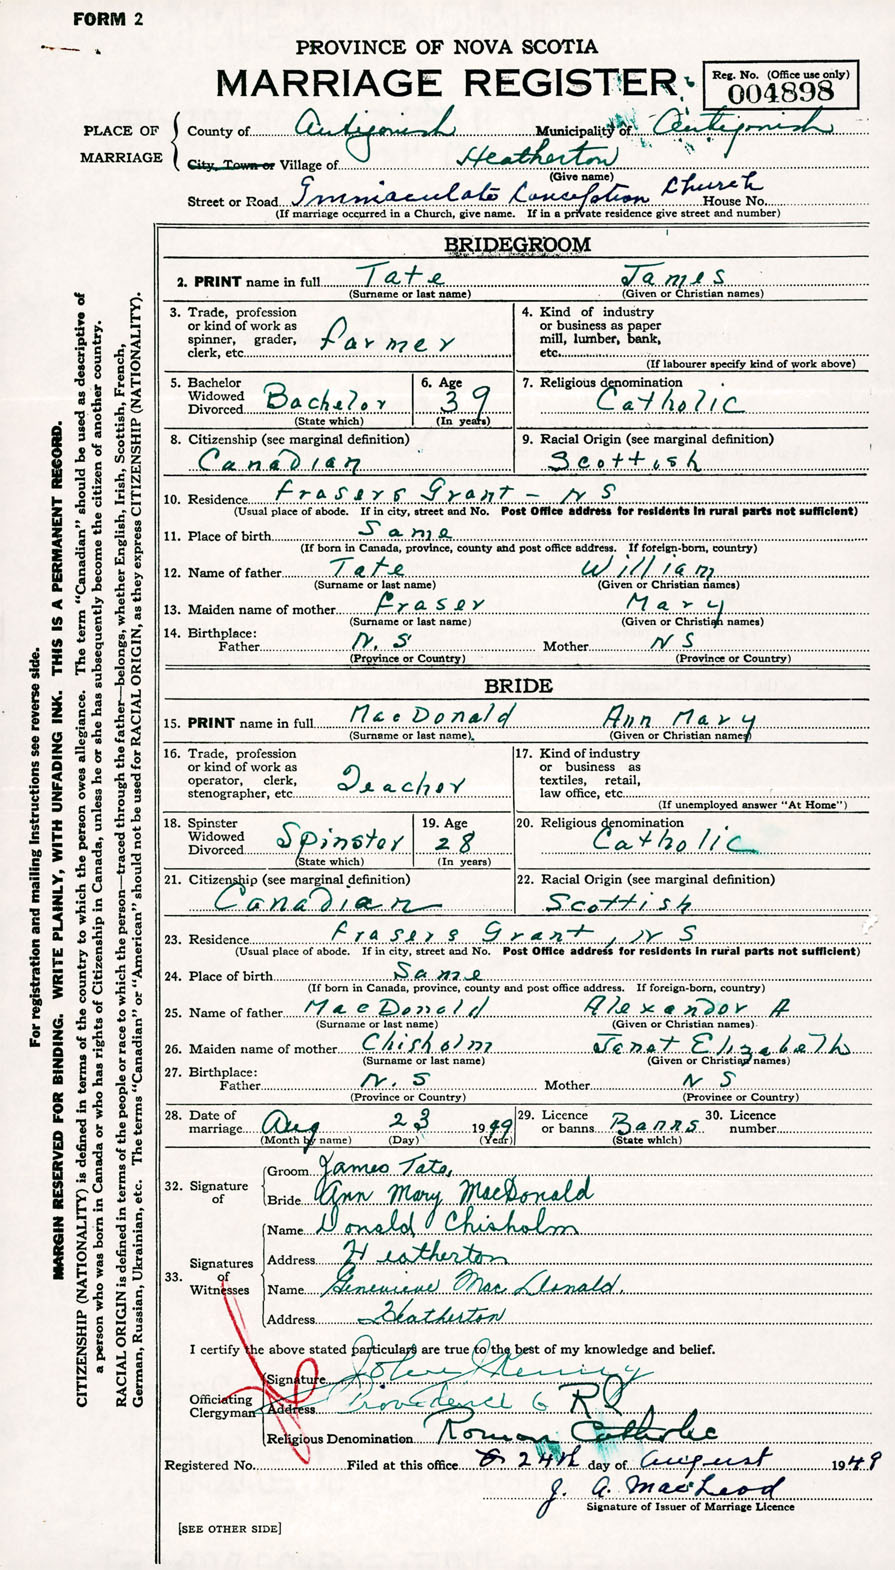 FORM 2
PROVINCE OF NOVA SCOTIA
MARRIAGE REGISTER
Reg. No. (Office use only)
004898
PLACE OF MARRIAGE
County of Antigonish Municipality of Antigonish
City, Town or Village of Heatherton
(Give name)
Street or Road Immaculate Conception Church House No.
(If marriage occurred in a Church, give name. If in a private residence give street and number)
BRIDEGROOM
2. PRINT name in full Tate James
(Surname or last name) (Given or Christian names)
3. Trade, profession or kind of work as spinner, grader, clerk, etc. Farmer
4. Kind of industry or business as paper mill, lumber, bank, etc.
(If labourer specify kind of work above)
5. Bachelor Widowed Divorced Bachelor
(State which)
6. Age 39
(In years)
7. Religious denomination Catholic
8. Citizenship (see marginal definition)
Canadian
9. Racial Origin (see marginal definition)
Scottish
10. Residence Frasers Grant - N S
(Usual place of abode. If in city, street and No. Post Office address for residents in rural parts not sufficient)
11. Place of birth Same
(If born in Canada, province, county and post office address. If foreign-born, country)
12. Name of father Tate William
(Surname or last name) (Given or Christian names)
13. Maiden name of mother Fraser Mary
(Surname or last name) (Given or Christian names)
14. Birthplace:
Father N. S Mother N S
(Province or Country) (Province or Country)
BRIDE
15. PRINT name in full MacDonald Ann Mary
(Surname or last name) (Given or Christian names)
16. Trade, profession or kind of work as operator, clerk, stenographer, etc. Teacher
17. Kind of industry or business as textiles, retail, law office, etc.
(If unemployed answer "At Home")
18. Spinster Widowed Divorced Spinster
(State which)
19. Age 28
(In years)
20. Religious denomination Catholic
21. Citizenship (see marginal definition)
Canadian
22. Racial Origin (see marginal definition)
Scottish
23. Residence Frasers Grant, N S
(Usual place of abode. If in city, street and No. Post Office address for residents in rural parts not sufficient)
24. Place of birth Same
(If born in Canada, province, county and post office address. If foreign-born, country)
25. Name of father MacDonald Alexander A
(Surname or last name) (Given or Christian names)
26. Maiden name of mother Chisholm Janet Elizabeth
(Surname or last name) (Given or Christian names)
27. Birthplace:
Father N. S Mother N S
(Province or Country) (Province or Country)
28. Date of marriage Aug 23 1949
(Month by name) (Day) (Year)
29. Licence or banns Banns
(State which)
30. Licence number
32. Signature of
Groom James Tate
Bride Ann Mary MacDonald
33. Signatures of Witnesses
Name Donald Chisholm
Address Heatherton
Name Genevieve MacDonald.
Address Heatherton
I certify the above stated particulars are true to the best of my knowledge and belief.
Officiating Clergyman
Signature John
Address Providence 6 RI
Religious Denomination Roman Catholic
Registered No. Filed at this office 24th day of August 1949
J. A. MacLeod
Signature of Issuer of Marriage Licence
[SEE OTHER SIDE]
For registration and mailing Instructions see reverse side.
MARGIN RESERVED FOR BINDING. WRITE PLAINLY, WITH UNFADING INK. THIS IS A PERMANENT RECORD.
CITIZENSHIP (NATIONALITY) is defined in terms of the country to which the person owes allegiance. The term "Canadian" should be used as descriptive of
a person who was born in Canada or who has rights of Citizenship in Canada, unless he or she has subsequently become the citizen of another country.
RACIAL ORIGIN is defined in terms of the people or race to which the person—traced through the father—belongs, whether English, Irish, Scottish, French,
German, Russian, Ukrainian, etc. The terms "Canadian" or "American" should not be used for RACIAL ORIGIN, as they express CITIZENSHIP (NATIONALITY).